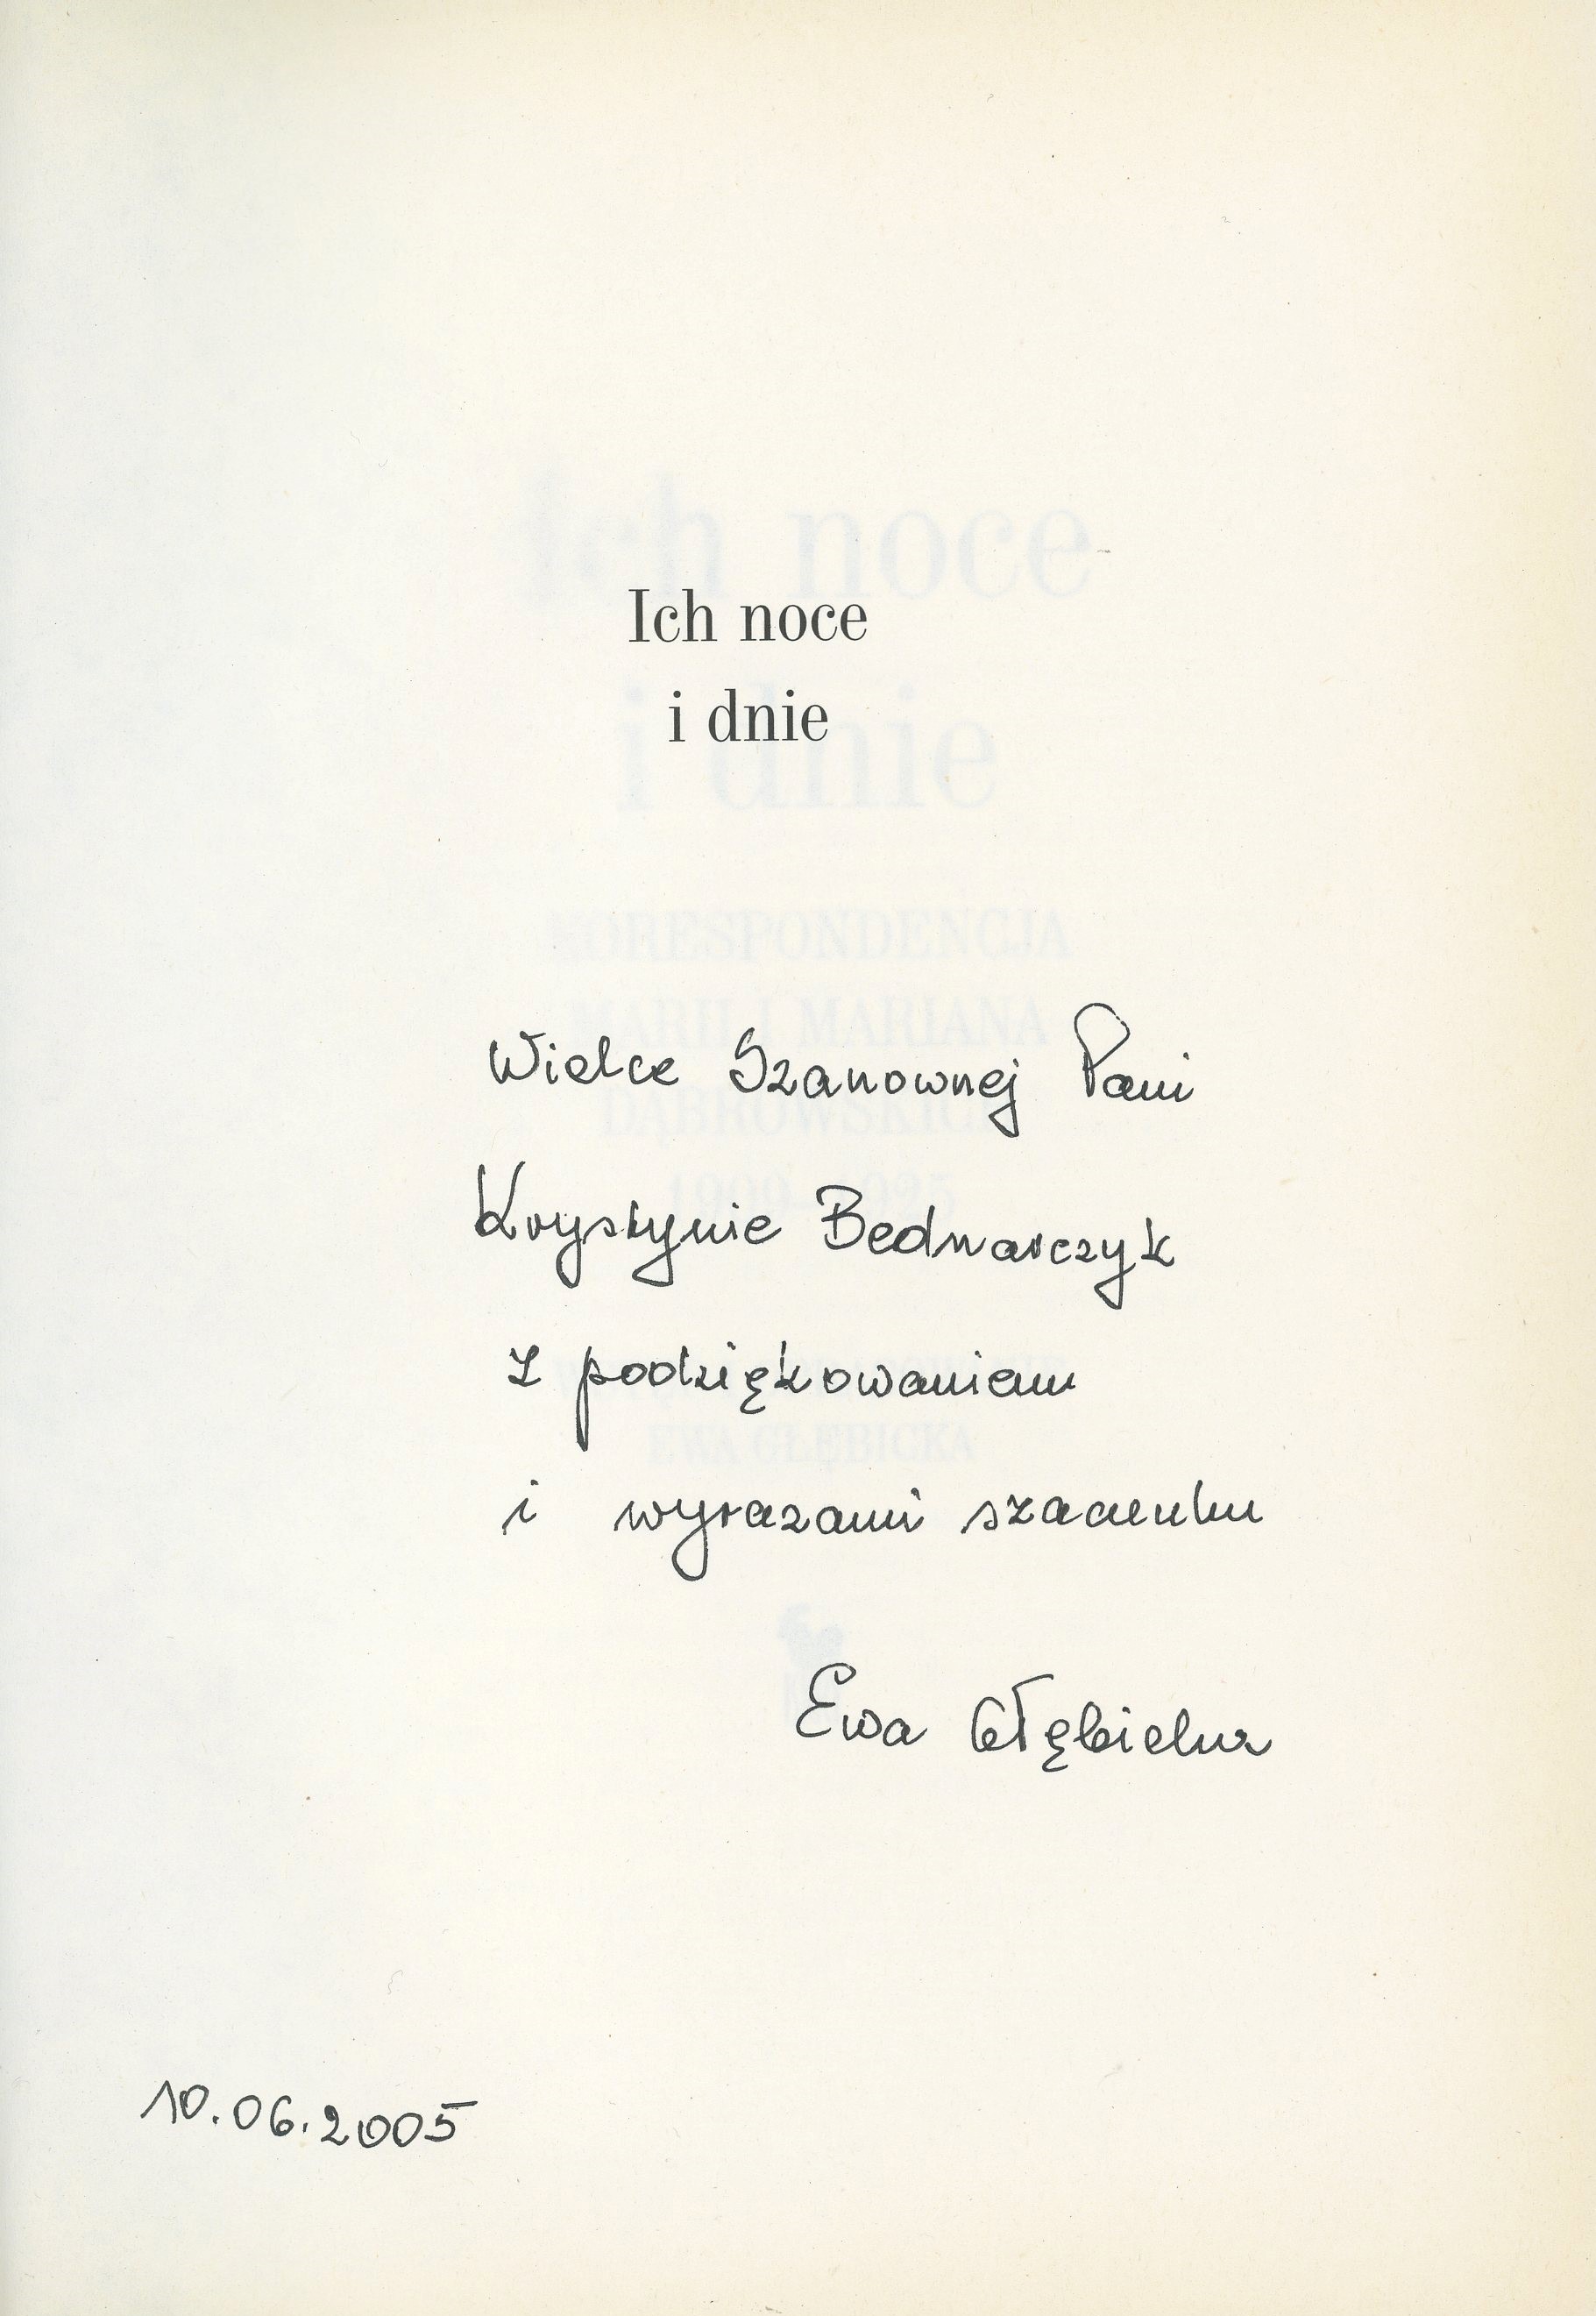 Ich noce
i dnie
Wielce Szanownej Pani
Krystynie Bednarczyk
z podziękowaniem
i wyrazami szacunku
Ewa Głębicka
10.06.2005